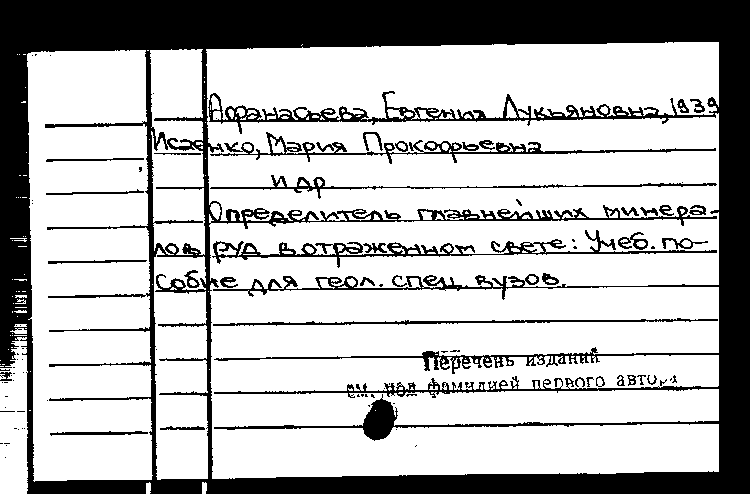 Афанасьева, Евгения Лукьяновна, 1939
Исаенко, Мария Прокофьевна
и др.
Определитель главнейших минера-
лов руд в отраженном свете: Учеб. по-
собие для геол. спец. вузов.
Перечень изданий
см. под фамилией первого автора